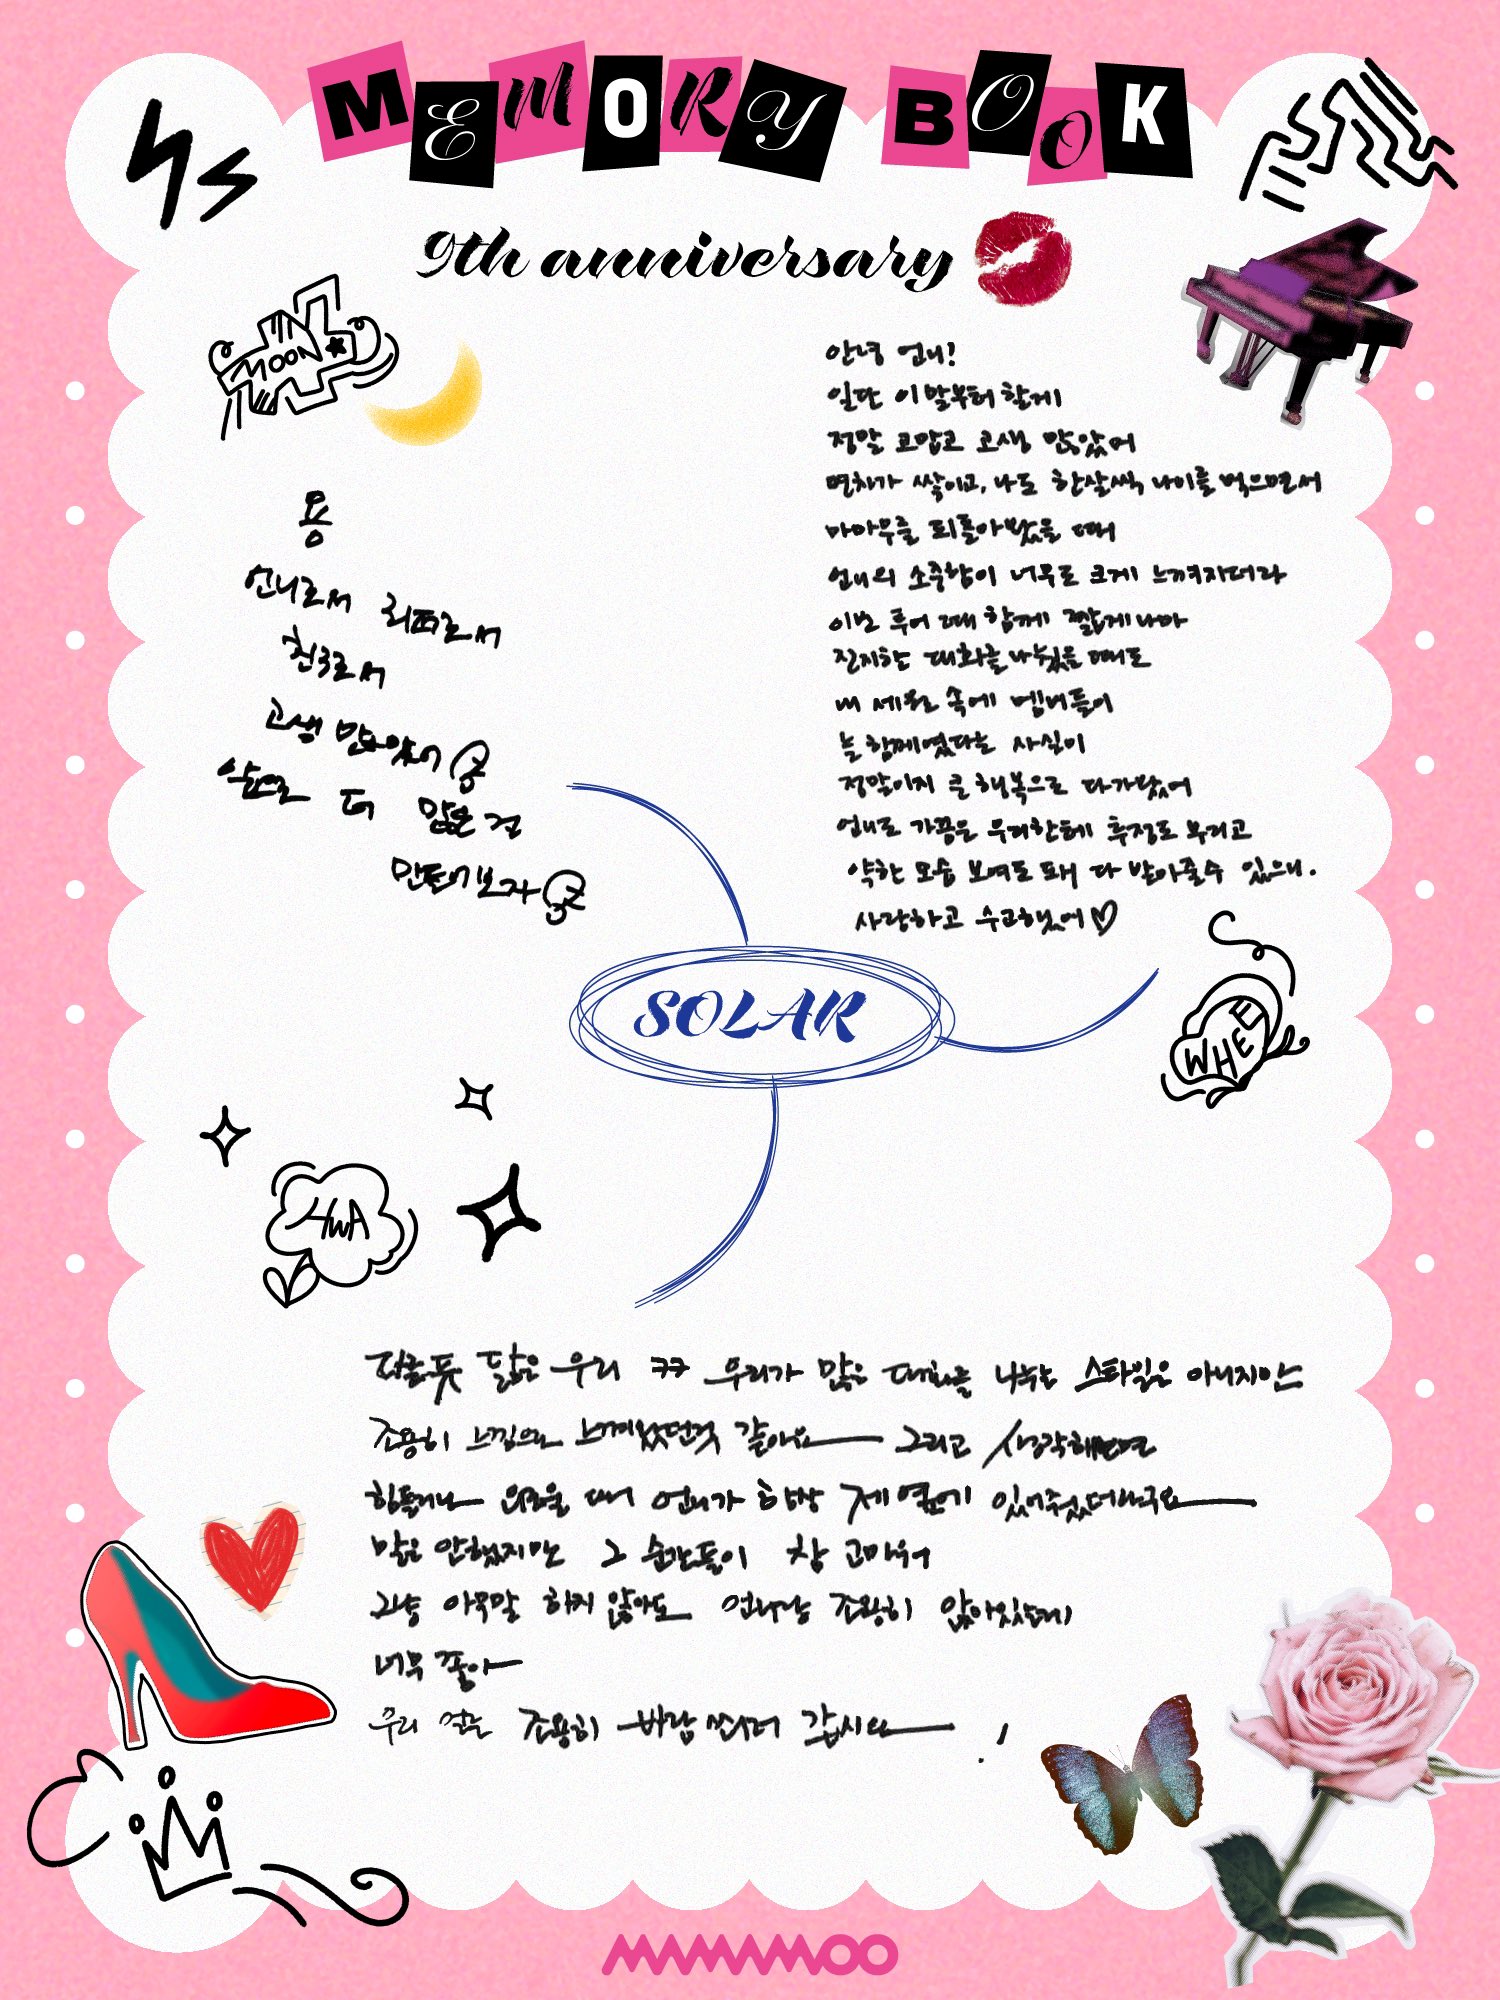 MEMORY BOOK
9th anniversary
MOON
용
언니로서 리더로서
친구로서
고생 많았어
앞으로 더 많은 걸
만들어보자
안녕 언니!
일단 이 말부터 할게
정말 고맙고 고생 많았어
연차가 쌓이고, 나도 한살씩 나이를 먹으면서
마마무를 되돌아봤을 때
언니의 소중함이 너무도 크게 느껴지더라
이번 투어 때 함께 짧게나마
진지한 대화를 나눴을 때도
내 세월 속에 멤버들이
늘 함께였다는 사실이
정말이지 큰 행복으로 다가왔어
언니도 가끔은 우리한테 투정도 부리고
약한 모습 보여도 돼 다 받아줄수 있으니.
사랑하고 수고했어♡
SOLAR
WHEE
HWA
데칼 닮은 우리 ㅋㅋ 우리가 많은 대화를 나누는 스타일은 아니지만
조용히 느낌으로 느껴왔던것 같아요 그리고 생각해보면
힘들거나 외로울 때 언니가 항상 제 옆에 있어줬더라구요
말은 안했지만 그 순간들이 참 고마워
그냥 아무말 하지 않아도 언니랑 조용히 앉아있는게
너무 좋아
우리 조용히 바람 쐬러 갑시다 !
MAMAMOO